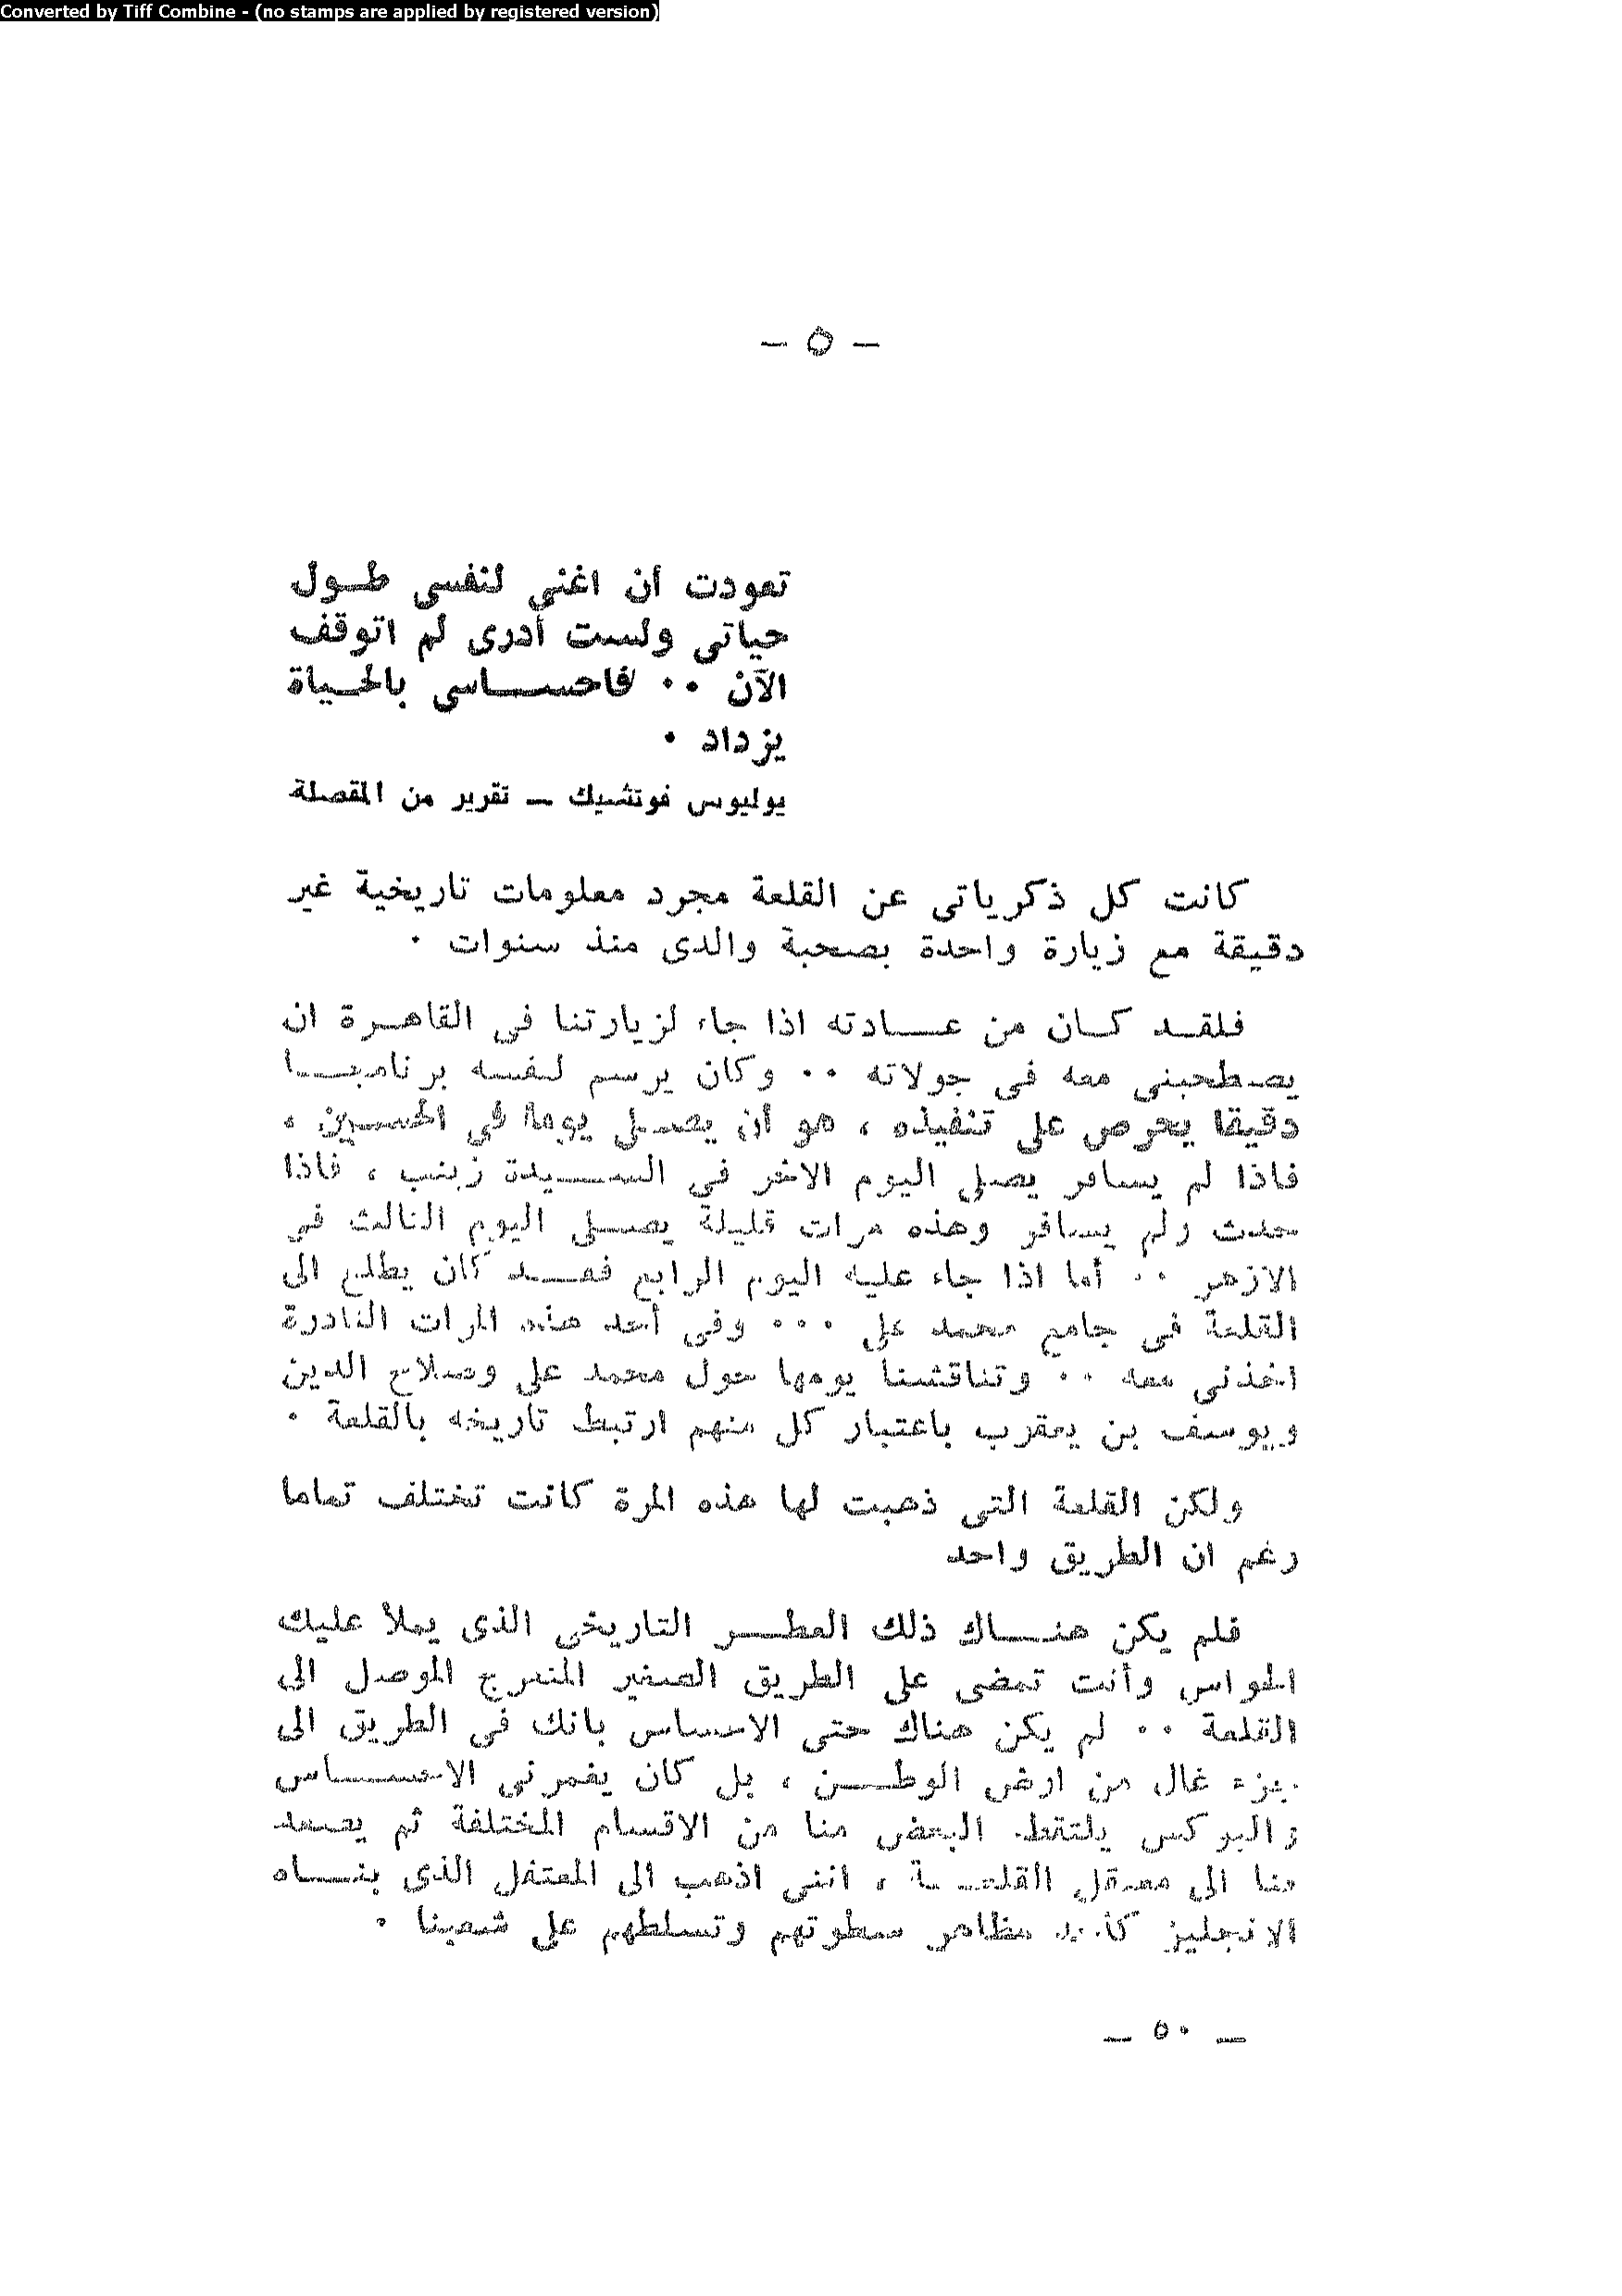 Converted by Tiff Combine - (no stamps are applied by registered version)
– ٥ –
تعودت أن اغنى لنفسى طول
حياتى ولست أدرى لم اتوقف
الآن ٠٠ فاحساسى بالحياة
يزداد ٠
يوليوس فوتشيك – تقرير من المقصلة
كانت كل ذكرياتى عن القلعة مجرد معلومات تاريخية غير
دقيقة مع زيارة واحدة بصحبة والدى منذ سنوات ٠
فلقد كان من عادته اذا جاء لزيارتنا فى القاهرة ان
يصطحبنى معه فى جولاته ٠٠ وكان يرسم لنفسه برنامجا
دقيقا يحرص على تنفيذه ، هو أن يصلى يوما فى الحسين ،
فاذا لم يسافر يصلى اليوم الاخر فى السيدة زينب ، فاذا
حدث ولم يسافر وهذه مرات قليلة يصلى اليوم الثالث فى
الازهر ٠٠ أما اذا جاء عليه اليوم الرابع فقد كان يطلع الى
القلعة فى جامع محمد على ٠٠٠ وفى أحد هذه المرات النادرة
اخذنى معه ٠٠ وتناقشنا يومها حول محمد على وصلاح الدين
ويوسف بن يعقوب باعتبار كل منهم ارتبط تاريخه بالقلعة ٠
ولكن القلعة التى ذهبت لها هذه المرة كانت تختلف تماما
رغم ان الطريق واحد
فلم يكن هناك ذلك العطر التاريخى الذى يملأ عليك
الحواس وأنت تمضى على الطريق الصغير المتعرج الموصل الى
القلعة ٠٠ لم يكن هناك حتى الاحساس بانك فى الطريق الى
جزء غال من ارض الوطن ، بل كان يغمرنى الاحساس
والبوكس يلتقط البعض منا من الاقسام المختلفة ثم يصعد
بنا الى معتقل القلعة ، اننى اذهب الى المعتقل الذى بناه
الانجليز كأحد مظاهر سطوتهم وتسلطهم على شعبنا ٠
– ٥٠ –